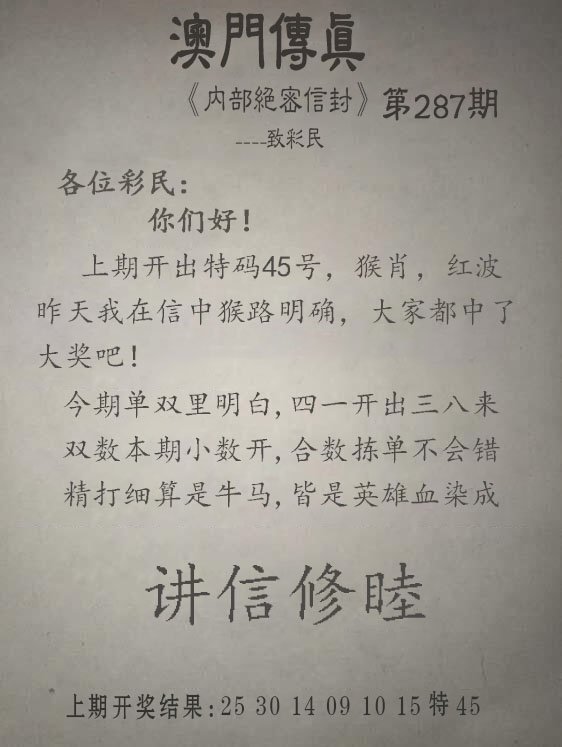 澳門傳眞
《内部絕密信封》第287期
----致彩民
各位彩民:
你们好!
上期开出特码45号，猴肖，红波
昨天我在信中猴路明确，大家都中了
大奖吧!
今期单双里明白,四一开出三八来
双数本期小数开,合数拣单不会错
精打细算是牛马,皆是英雄血染成
讲信修睦
上期开奖结果:25 30 14 09 10 15特45